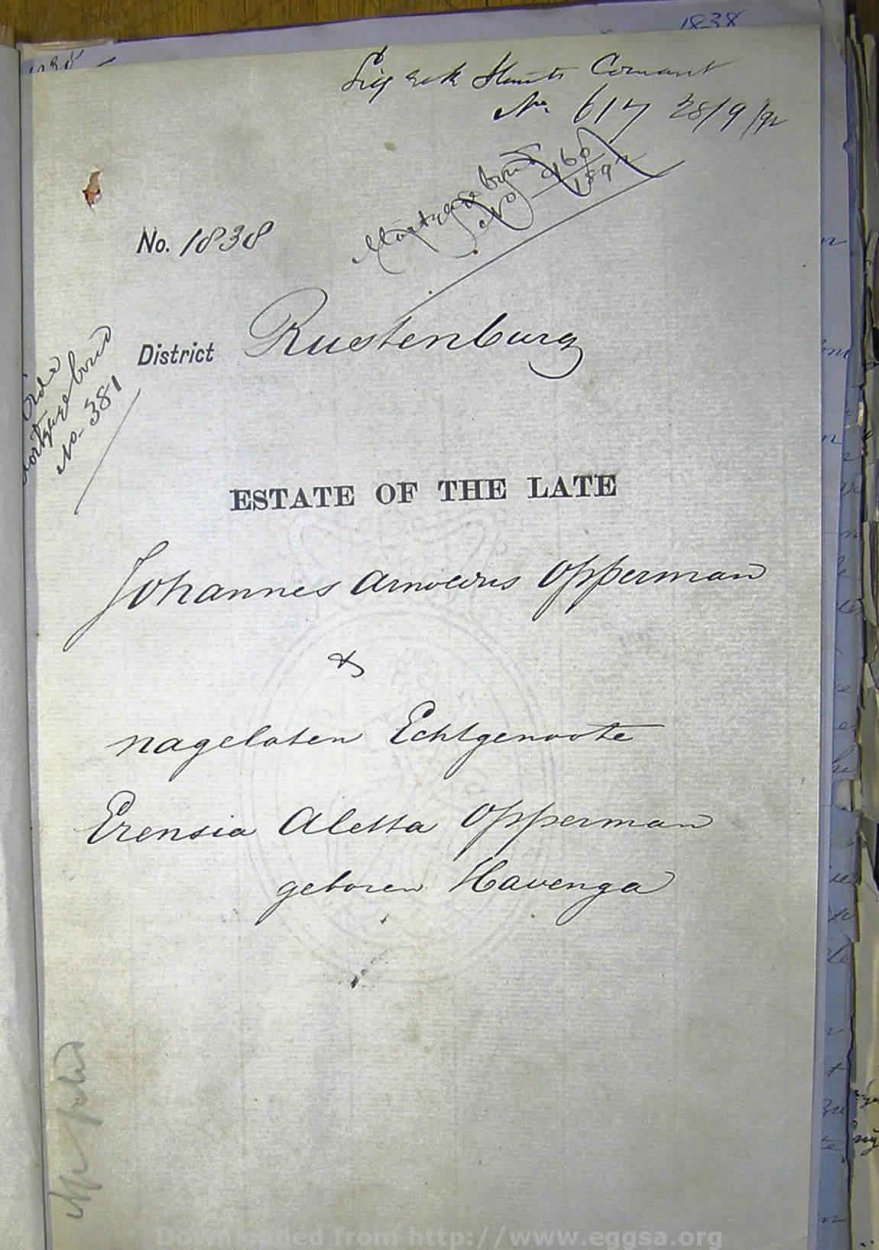 1838
Zie ook Comant
No 617 28/9/92
Mortgage bond
No 160/1892
No. 1838
District Rustenburg
bond
No. 381
ESTATE OF THE LATE
Johannes Arnoldus Opperman
&
nagelaten Echtgenoote
Erensia Aletta Opperman
geboren Havenga
Downloaded from http://www.eggsa.org